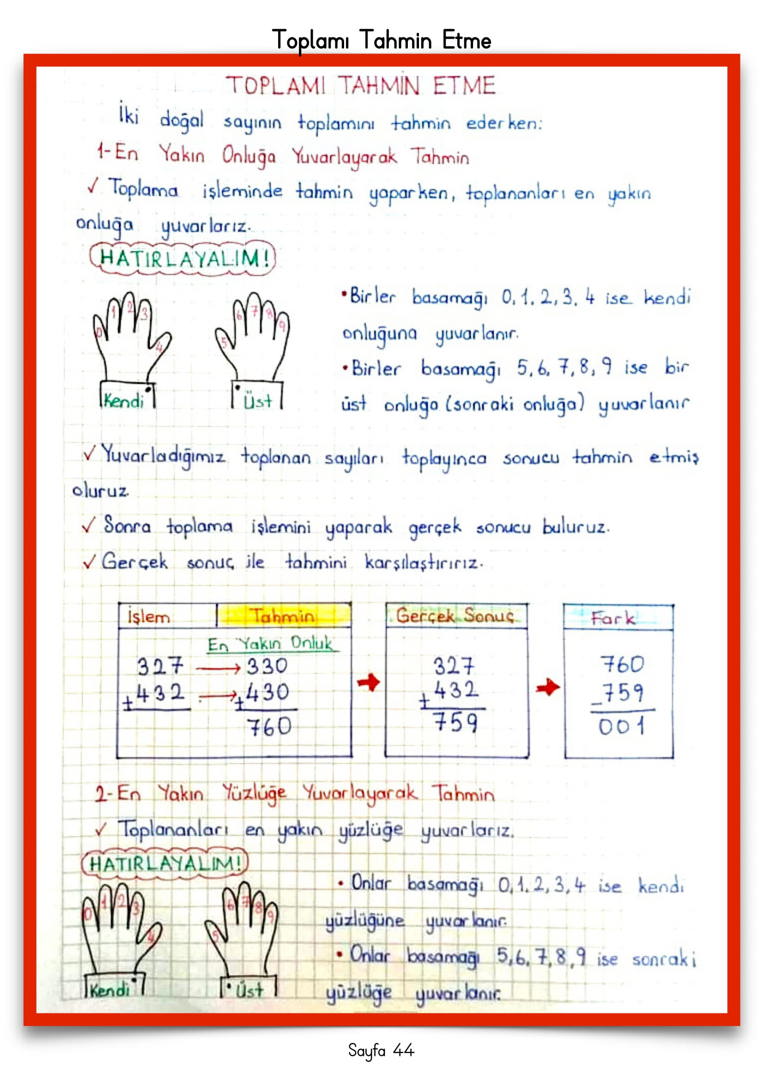 Toplamı Tahmin Etme
TOPLAMI TAHMİN ETME
İki doğal sayının toplamını tahmin ederken:
1-En Yakın Onluğa Yuvarlayarak Tahmin
✓ Toplama işleminde tahmin yaparken, toplananları en yakın
onluğa yuvarlarız.
HATIRLAYALIM!
0 1 2 3 4
5 6 7 8 9
Kendi
Üst
•Birler basamağı 0, 1, 2, 3, 4 ise kendi
onluğuna yuvarlanır.
•Birler basamağı 5, 6, 7, 8, 9 ise bir
üst onluğa (sonraki onluğa) yuvarlanır
✓ Yuvarladığımız toplanan sayıları toplayınca sonucu tahmin etmiş
oluruz
✓ Sonra toplama işlemini yaparak gerçek sonucu buluruz.
✓ Gerçek sonuç ile tahmini karşılaştırırız.
İşlem Tahmin
En Yakın Onluk
327 → 330
+432 → +430
760
Gerçek Sonuç
327
+432
759
Fark
760
-759
001
2-En Yakın Yüzlüğe Yuvarlayarak Tahmin
✓ Toplananları en yakın yüzlüğe yuvarlarız.
HATIRLAYALIM!
0 1 2 3 4
5 6 7 8 9
Kendi
Üst
• Onlar basamağı 0, 1, 2, 3, 4 ise kendi
yüzlüğüne yuvarlanır.
• Onlar basamağı 5, 6, 7, 8, 9 ise sonraki
yüzlüğe yuvarlanır.
Sayfa 44